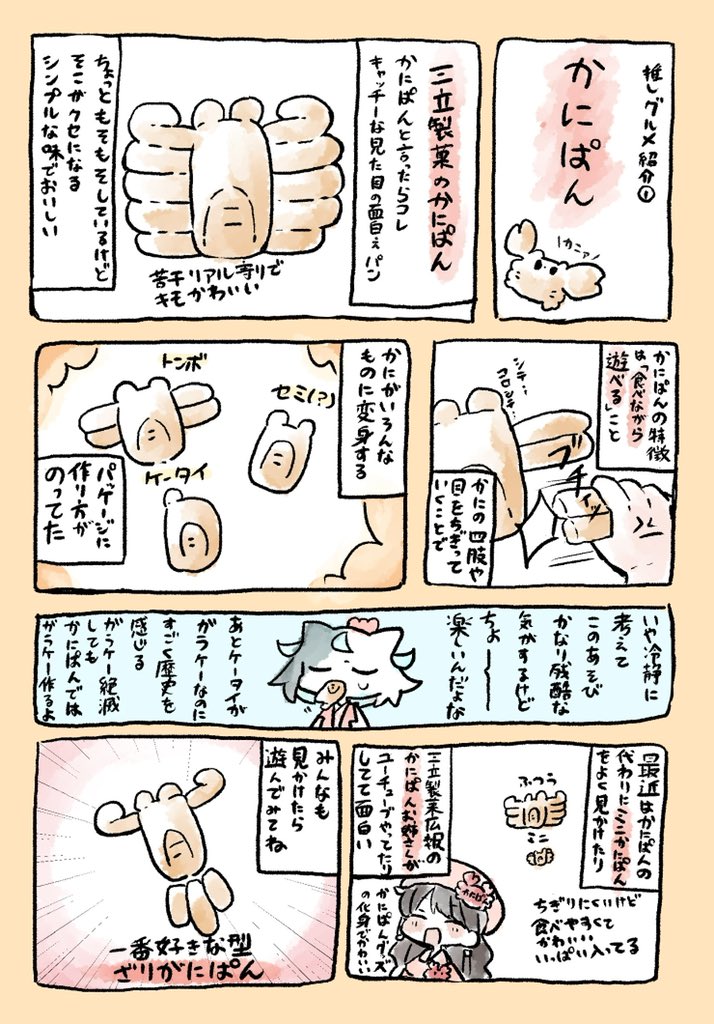 推しグルメ紹介①
かにぱん
カニァ
三立製菓のかにぱん
かにぱんと言ったらコレ
キャッチーな見た目の面白ぇパン
若干リアル寄りで
キモかわいい
ちょっともそもそしているけど
そこがクセになる
シンプルな味でおいしい
かにぱんの特徴
は「食べながら
遊べる」こと
シテ…
コロシテ…
ブチィッ
かにの四肢や
目をちぎって
いくことで
かにがいろんな
ものに変身する
トンボ
セミ(?)
ケータイ
パッケージに
作り方が
のってた
いや冷静に
考えて
このあそび
かなり残酷な
気がするけど
ちょーーー
楽しいんだよな
あとケータイが
ガラケーなのに
すごく歴史を
感じる
ガラケー絶滅
しても
かにぱんでは
ガラケー作るよ
最近はかにぱんの
代わりにミニかにぱん
をよく見かけたり
ふつう
ミニ
ちぎりにくいけど
食べやすくて
かわいい
いっぱい入ってる
三立製菓広報の
かにぱんお姉さんが
ユーチューブやってたり
してて面白い
かにぱん
かにぱんグッズ
の化身でかわいい
みんなも
見かけたら
遊んでみてね
一番好きな型
ざりがにぱん